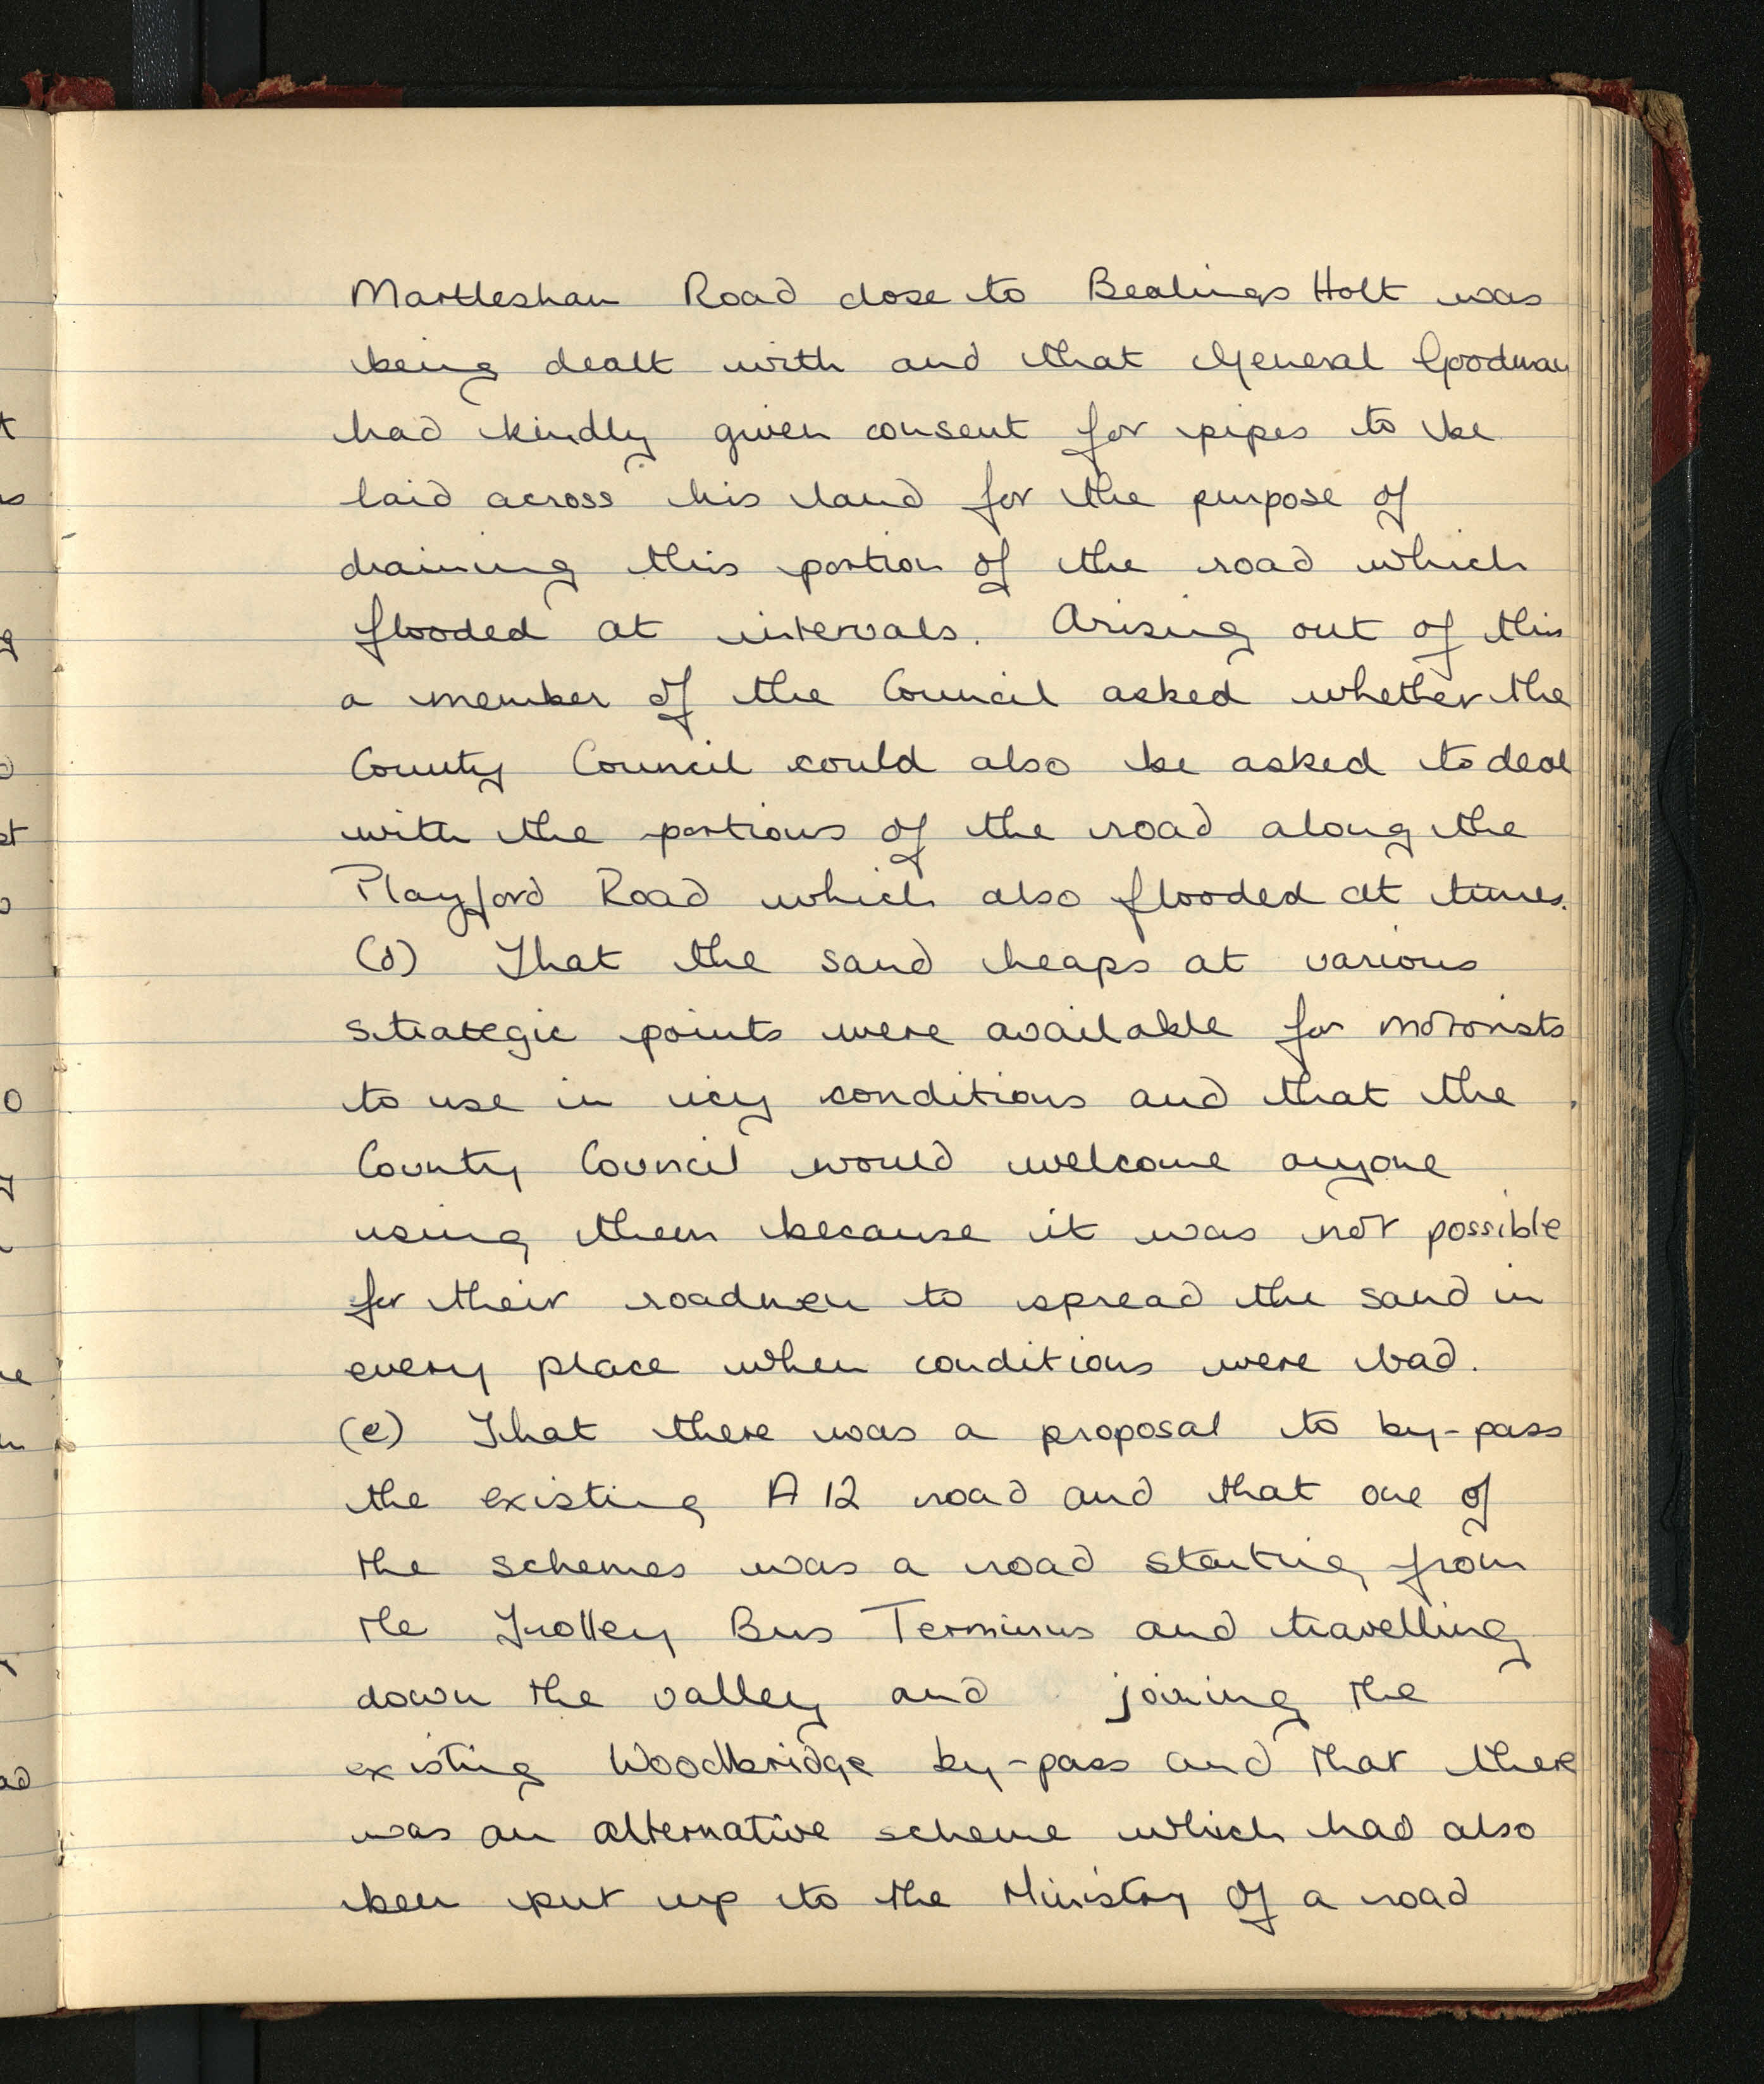 Martlesham Road close to Bealings Holt was
being dealt with and that General Goodway
had kindly given consent for pipes to be
laid across his land for the purpose of
draining this portion of the road which
flooded at intervals. Arising out of this
a member of the Council asked whether the
County Council could also be asked to deal
with the portions of the road along the
Playford Road which also flooded at times.
(d) That the sand heaps at various
strategic points were available for motorists
to use in icy conditions and that the
County Council would welcome anyone
using them because it was not possible
for their roadmen to spread the sand in
every place when conditions were bad.
(e) That there was a proposal to by-pass
the existing A 12 road and that one of
the schemes was a road starting from
the Trolley Bus Terminus and travelling
down the valley and joining the
existing Woodbridge by-pass and that there
was an alternative scheme which had also
been put up to the Ministry of a road